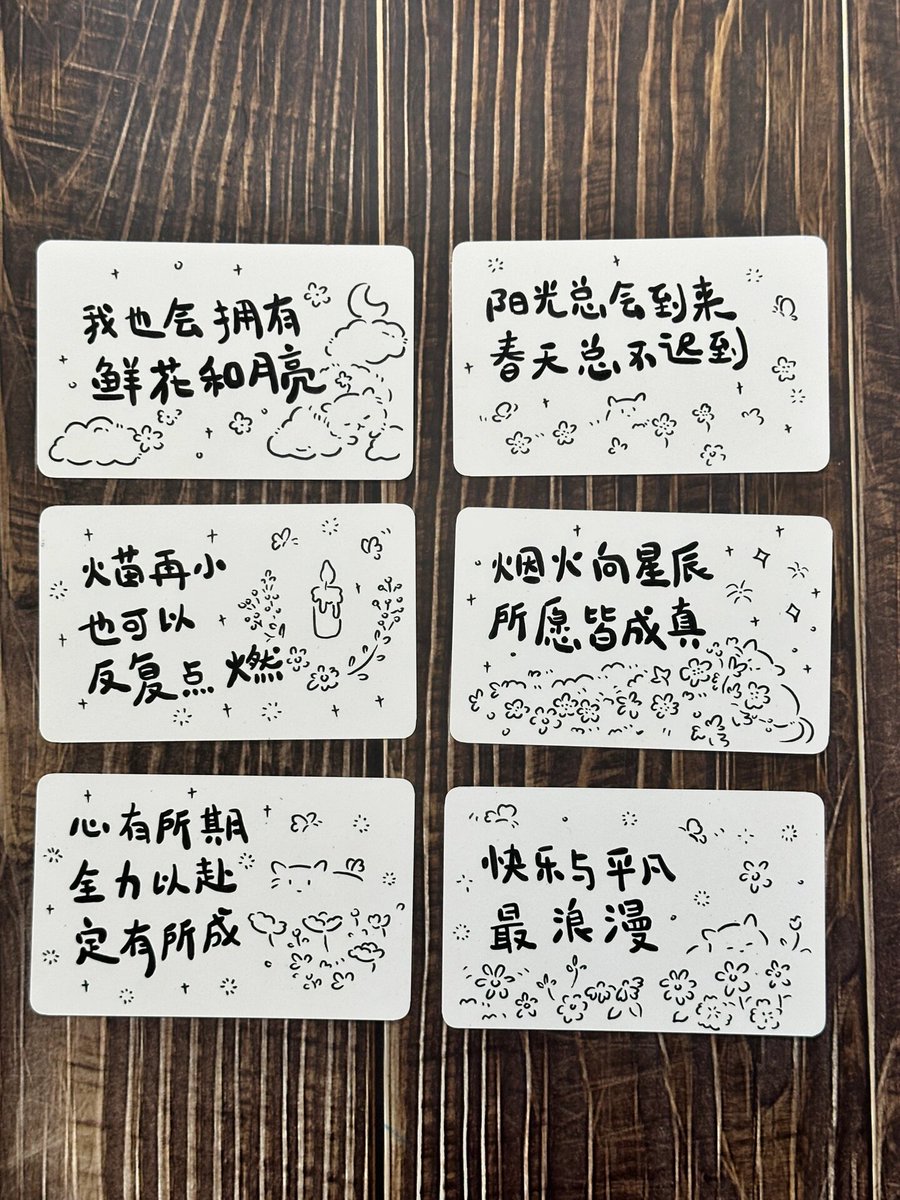 我也会拥有
鲜花和月亮
阳光总会到来
春天总不迟到
火苗再小
也可以
反复点燃
烟火向星辰
所愿皆成真
心有所期
全力以赴
定有所成
快乐与平凡
最浪漫